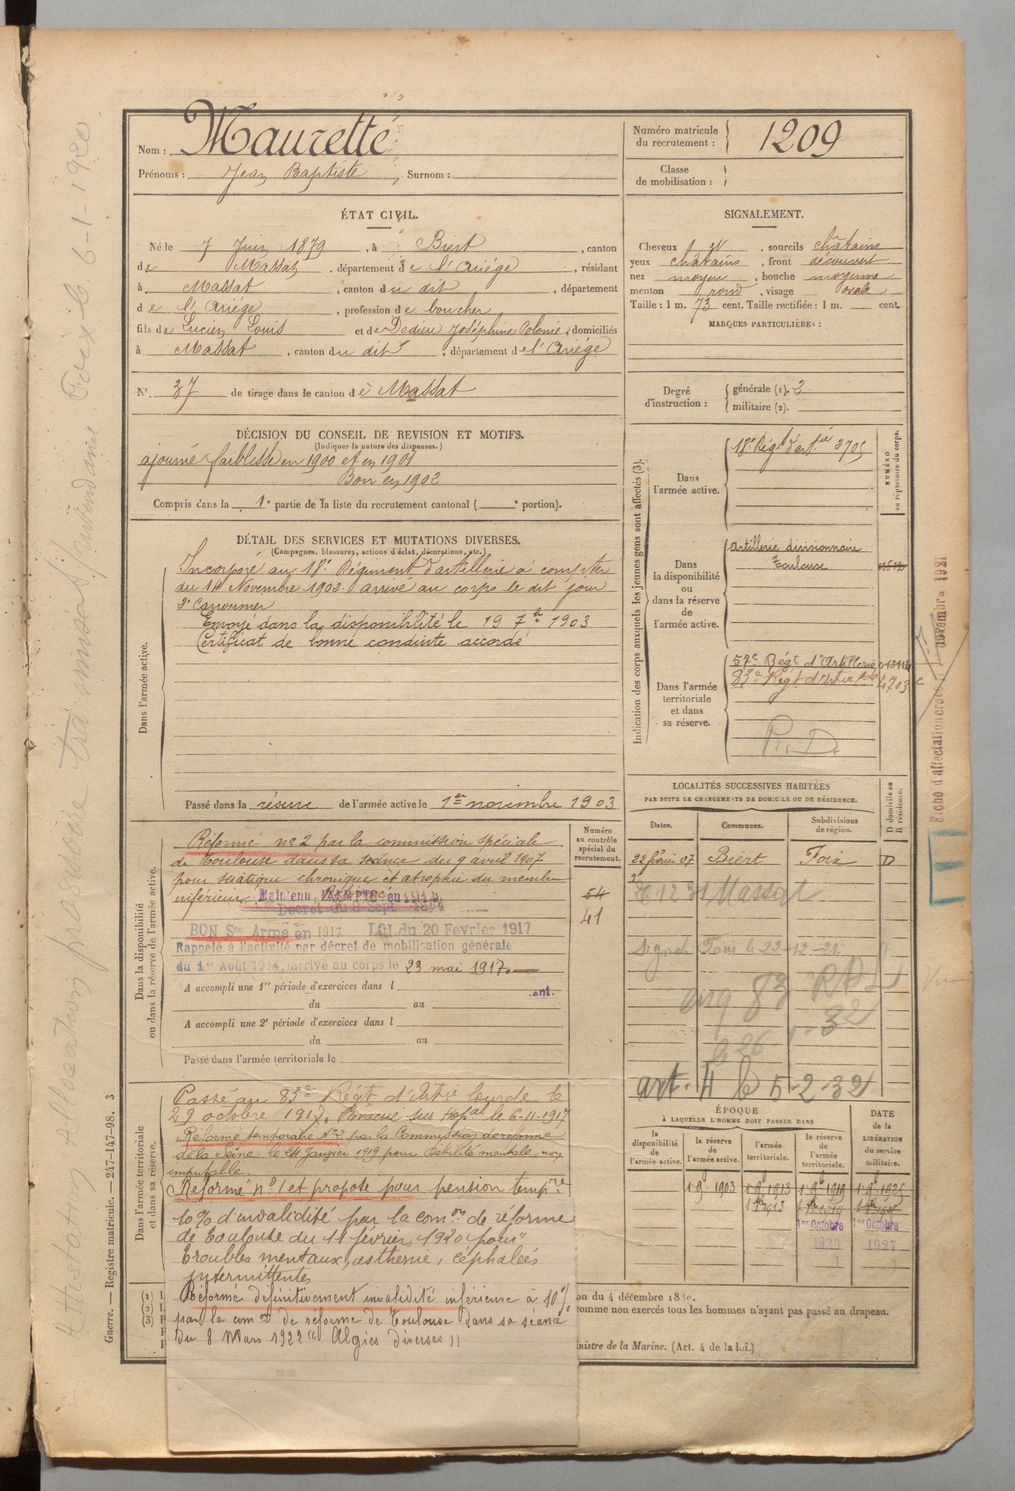 Nom : Maurette
Prénoms : Jean Baptiste , Surnom :
Numéro matricule du recrutement : 1209
Classe de mobilisation :
ÉTAT CIVIL.
Né le 7 Juin 1879 , à Biert , canton
de Massat , département de l'Ariége , résidant
à Massat , canton du dit , département
de l'Ariége , profession de boucher
fils de Lucien Louis et de Dedieu Joséphine , domiciliés
à Massat , canton du dit , département de l'Ariége
N° 37 de tirage dans le canton de Massat
SIGNALEMENT.
Cheveux , sourcils châtains
yeux châtains , front découvert
nez moyen , bouche moyenne
menton rond , visage ovale
Taille : 1 m. 73 cent. Taille rectifiée : 1 m. cent.
MARQUES PARTICULIÈRES :
Degré d'instruction : générale (1). 2
militaire (2).
DÉCISION DU CONSEIL DE REVISION ET MOTIFS.
(Indiquer la nature des dispenses.)
ajourné faiblesse en 1900 et en 1901
Bon en 1902
Compris dans la 1e partie de la liste du recrutement cantonal ( e portion).
DÉTAIL DES SERVICES ET MUTATIONS DIVERSES.
(Campagnes, blessures, actions d'éclat, décorations, etc.)
Dans l'armée active.
Incorporé au 18e Régiment d'artillerie à compter
du 14 Novembre 1902. arrivé au corps le dit jour
2e Canonnier
Envoyé dans la disponibilité le 19 7bre 1903
Certificat de bonne conduite accordé
Passé dans la réserve de l'armée active le 1er novembre 1903
Indication des corps auxquels les jeunes gens sont affectés (3).
NUMÉRO au répertoire du corps.
Dans l'armée active.
18e Régt d'artie 3705
Dans la disponibilité ou dans la réserve de l'armée active.
artillerie divisionnaire
Toulouse
Dans l'armée territoriale et dans sa réserve.
57e Régt d'Artillerie
83e Régt d'Artie 4703
R.D.
Fiche d'affectation novembre 1921
LOCALITÉS SUCCESSIVES HABITÉES
PAR SUITE DE CHANGEMENTS DE DOMICILE OU DE RÉSIDENCE.
Dates. Communes. Subdivisions de région. D domicile ou R résidence.
22 févri 07 Biert Foix D
Massat
Foix le 22-12-21
art. 4 le 5-2-32
Dans la disponibilité ou dans la réserve de l'armée active.
Numéro au contrôle spécial du recrutement.
54
41
Réformé no 2 par la commission spéciale
de Toulouse dans sa séance du 9 avril 1907
pour sciatique chronique et atrophie du membre
inférieur
Maintenu
BON Sce Armé en 1917 LOI du 20 Fevrier 1917
Rappelé à l'activité par décret de mobilisation générale
du 1er Août 1914, arrivé au corps le 23 mai 1917.
A accompli une 1re période d'exercices dans l
du au
A accompli une 2e période d'exercices dans l
du au
Passé dans l'armée territoriale le
Dans l'armée territoriale et dans sa réserve.
Passé au 83e Régt d'Artie lourde le
29 octobre 1917. Evacué sur hopal le 6-11-1917
Réformé temporaire No 2 par la Commission de réforme
de la Seine le 24 Janvier 1919 pour débilité mentale non
imputable.
Réformé no 1 et proposé pour pension tempre
10% d'invalidité par la comon de réforme
de Toulouse du 11 février 1920 pour
troubles mentaux, asthénie, céphalées
intermittentes
Réformé définitivement invalidité inférieure à 10%
par la comon de réforme de Toulouse dans sa séance
du 8 Mars 1922 "Algies diverses"
ÉPOQUE
À LAQUELLE L'HOMME DOIT PASSER DANS
la disponibilité de l'armée active. la réserve de l'armée active. l'armée territoriale. la réserve de l'armée territoriale.
DATE de la LIBÉRATION du service militaire.
1-9-1903 1-9-1913 1-9-1919 1-9-1925
1er Octobre 1er Octobre
1927
(1)
(2)
(3)
on du 4 décembre 1889.
comme non exercés tous les hommes n'ayant pas passé au drapeau.
nistre de la Marine. (Art. 4 de la loi.)
Guerre. — Registre matricule. — 247-147-98. 3
Foix le 6-1-1920.